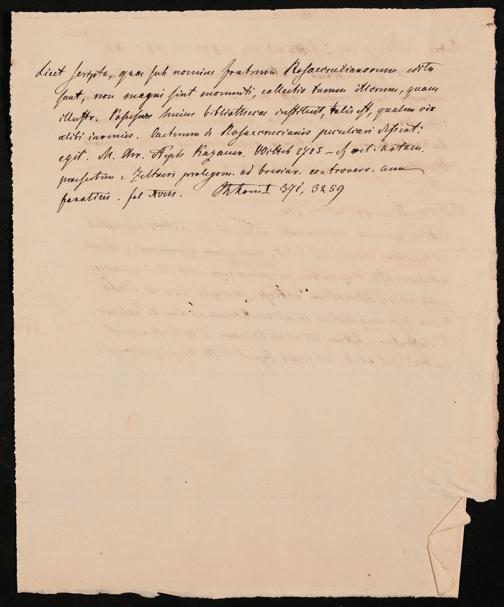 Licet scripta, quae sub nomine fratrum Rosaecrucianorum edita
sunt, non magni sint momenti, collectio tamen illorum, quam
illustr. Possessor huius bibliothecae instituit, talis est, qualem vix
alibi invenies. Caeterum de Rosaecrucianis peculiari dissert.
egit. M. Chr. Steph. Kazauer. Witteb 1715 – cf
praesertim Zeltneri prolegom. ad breviar. controvers. cum
fanaticis. 371, 3259